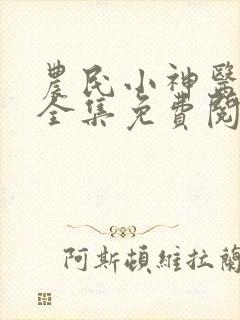 農民小神醫
全集免費閱
阿斯頓維拉蘭